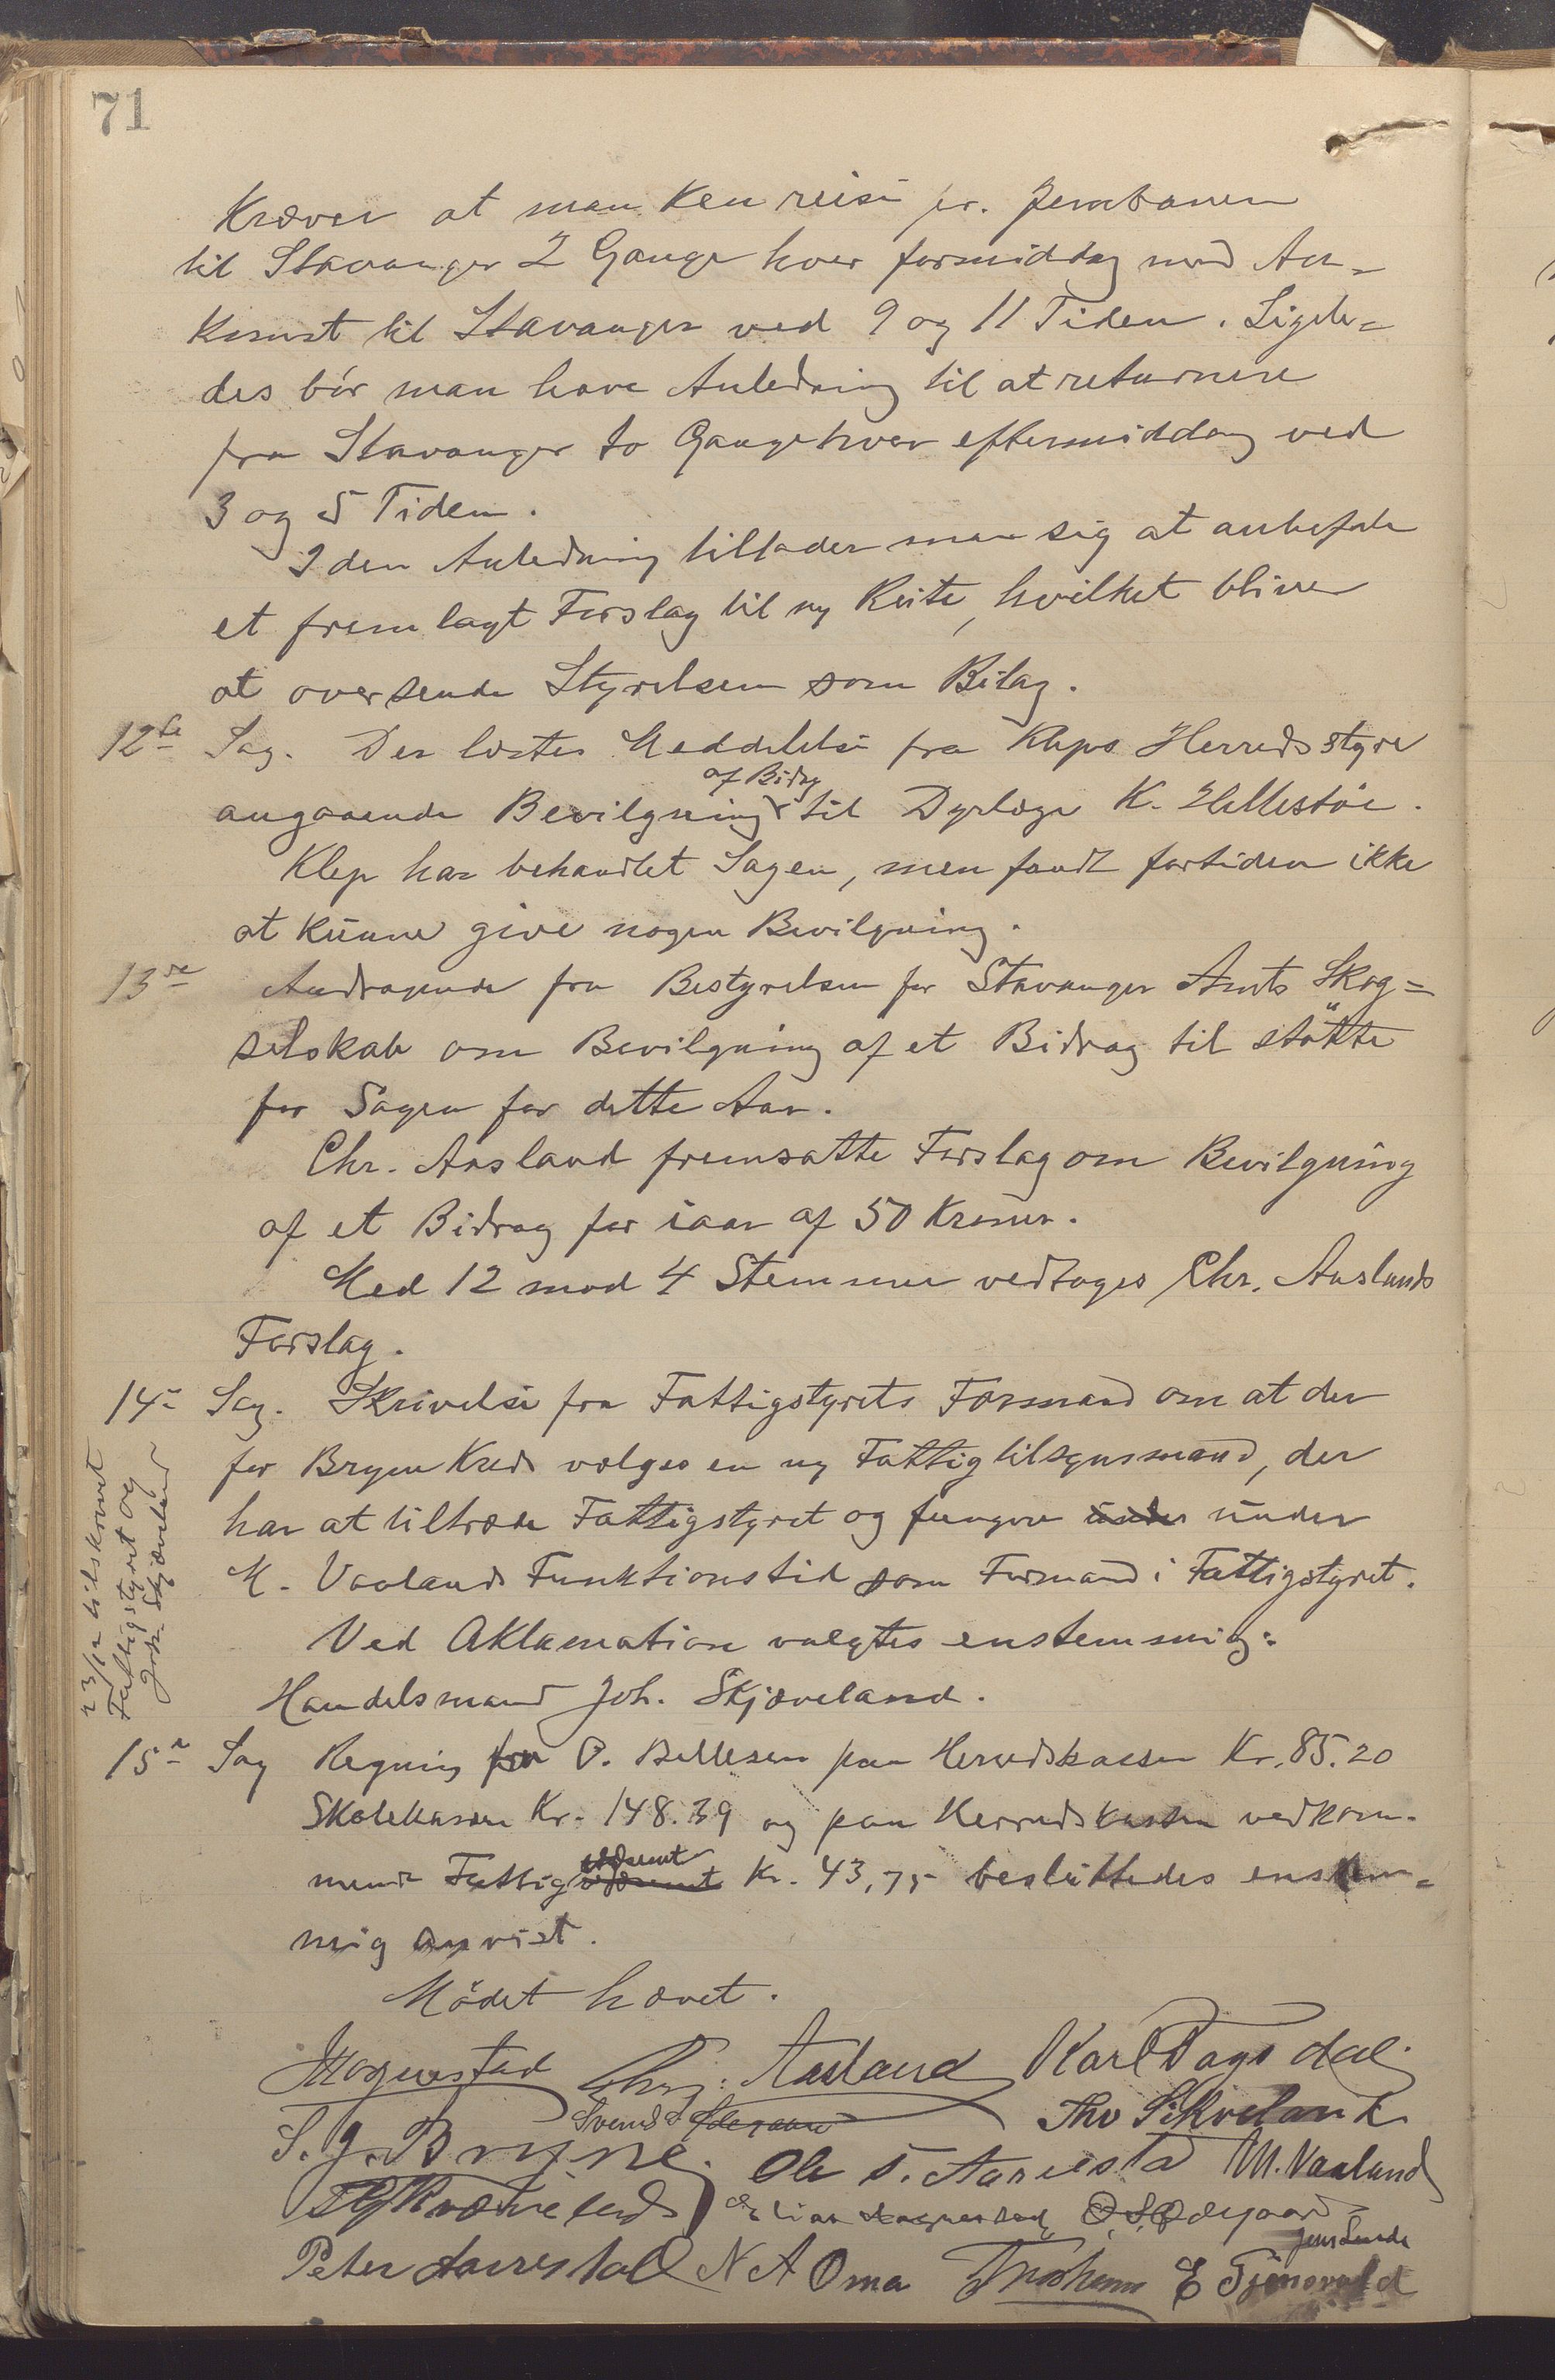 71
Kræver at man kan reise pr. Jernbanen
til Stavanger 2 Gange hver formiddag med An-
komst til Stavanger ved 9 og 11 Tiden. Ligele-
des bör man have Anledning til at returnere
fra Stavanger to Gange hver eftermiddag ved
3 og 5 Tiden.
I den Anledning tillader man sig at anbefale
et fremlagt Forslag til ny Ruite, hvilket bliver
at oversende Styrelsen som Bilag.
12te Sag. Der læstes Meddelelse fra Kleps Herredsstyre
af Bidrag
angaaende Bevilgning til Dyrlæge K. Hellestöe.
Klep har behandlet Sagen, men fandt fortiden ikke
at kunne give nogen Bevilgning.
13de Andragende fra Bestyrelsen for Stavanger Amts Skog=
selskab om Bevilgning af et Bidrag til stötte
for Sagen for dette Aar.
Chr. Aasland fremsatte Forslag om Bevilgning
af et Bidrag for iaar af 50 Kroner.
Med 12 mod 4 Stemmer vedtoges Chr. Aaslands
Forslag.
14de Sag. Skrivelse fra Fattigstyrets Formand om at der
for Bryne Kreds vælges en ny Fattigtilsynsmand, der
har at tiltræde Fattigstyret og fungere under under
M. Vaolands Funktionstid som Formand i Fattigstyret.
Ved Aklamation valgtes enstemmig:
Handelsmand Joh. Skjæveland.
23/12 tilskrevet
Fattigstyret og
Joh. Skjæveland
15de Sag Regning fra O. Bellesen paa Herredskassen Kr. 85.20
Skolekassen Kr. 148.39 og paa Herredskassen vedkom-
mende Fattig Kr. 43,75 besluttedes enstem=
mig anvist.
Mödet hævet.
Chr. Aasland Karl Tagsdal
Svend
S. J. Bryne Ole T. Aarrestad M. Vaaland
O. S. Ødegaard
Jens Lende
Peter Aarrestad N A Oma E Tjensvold